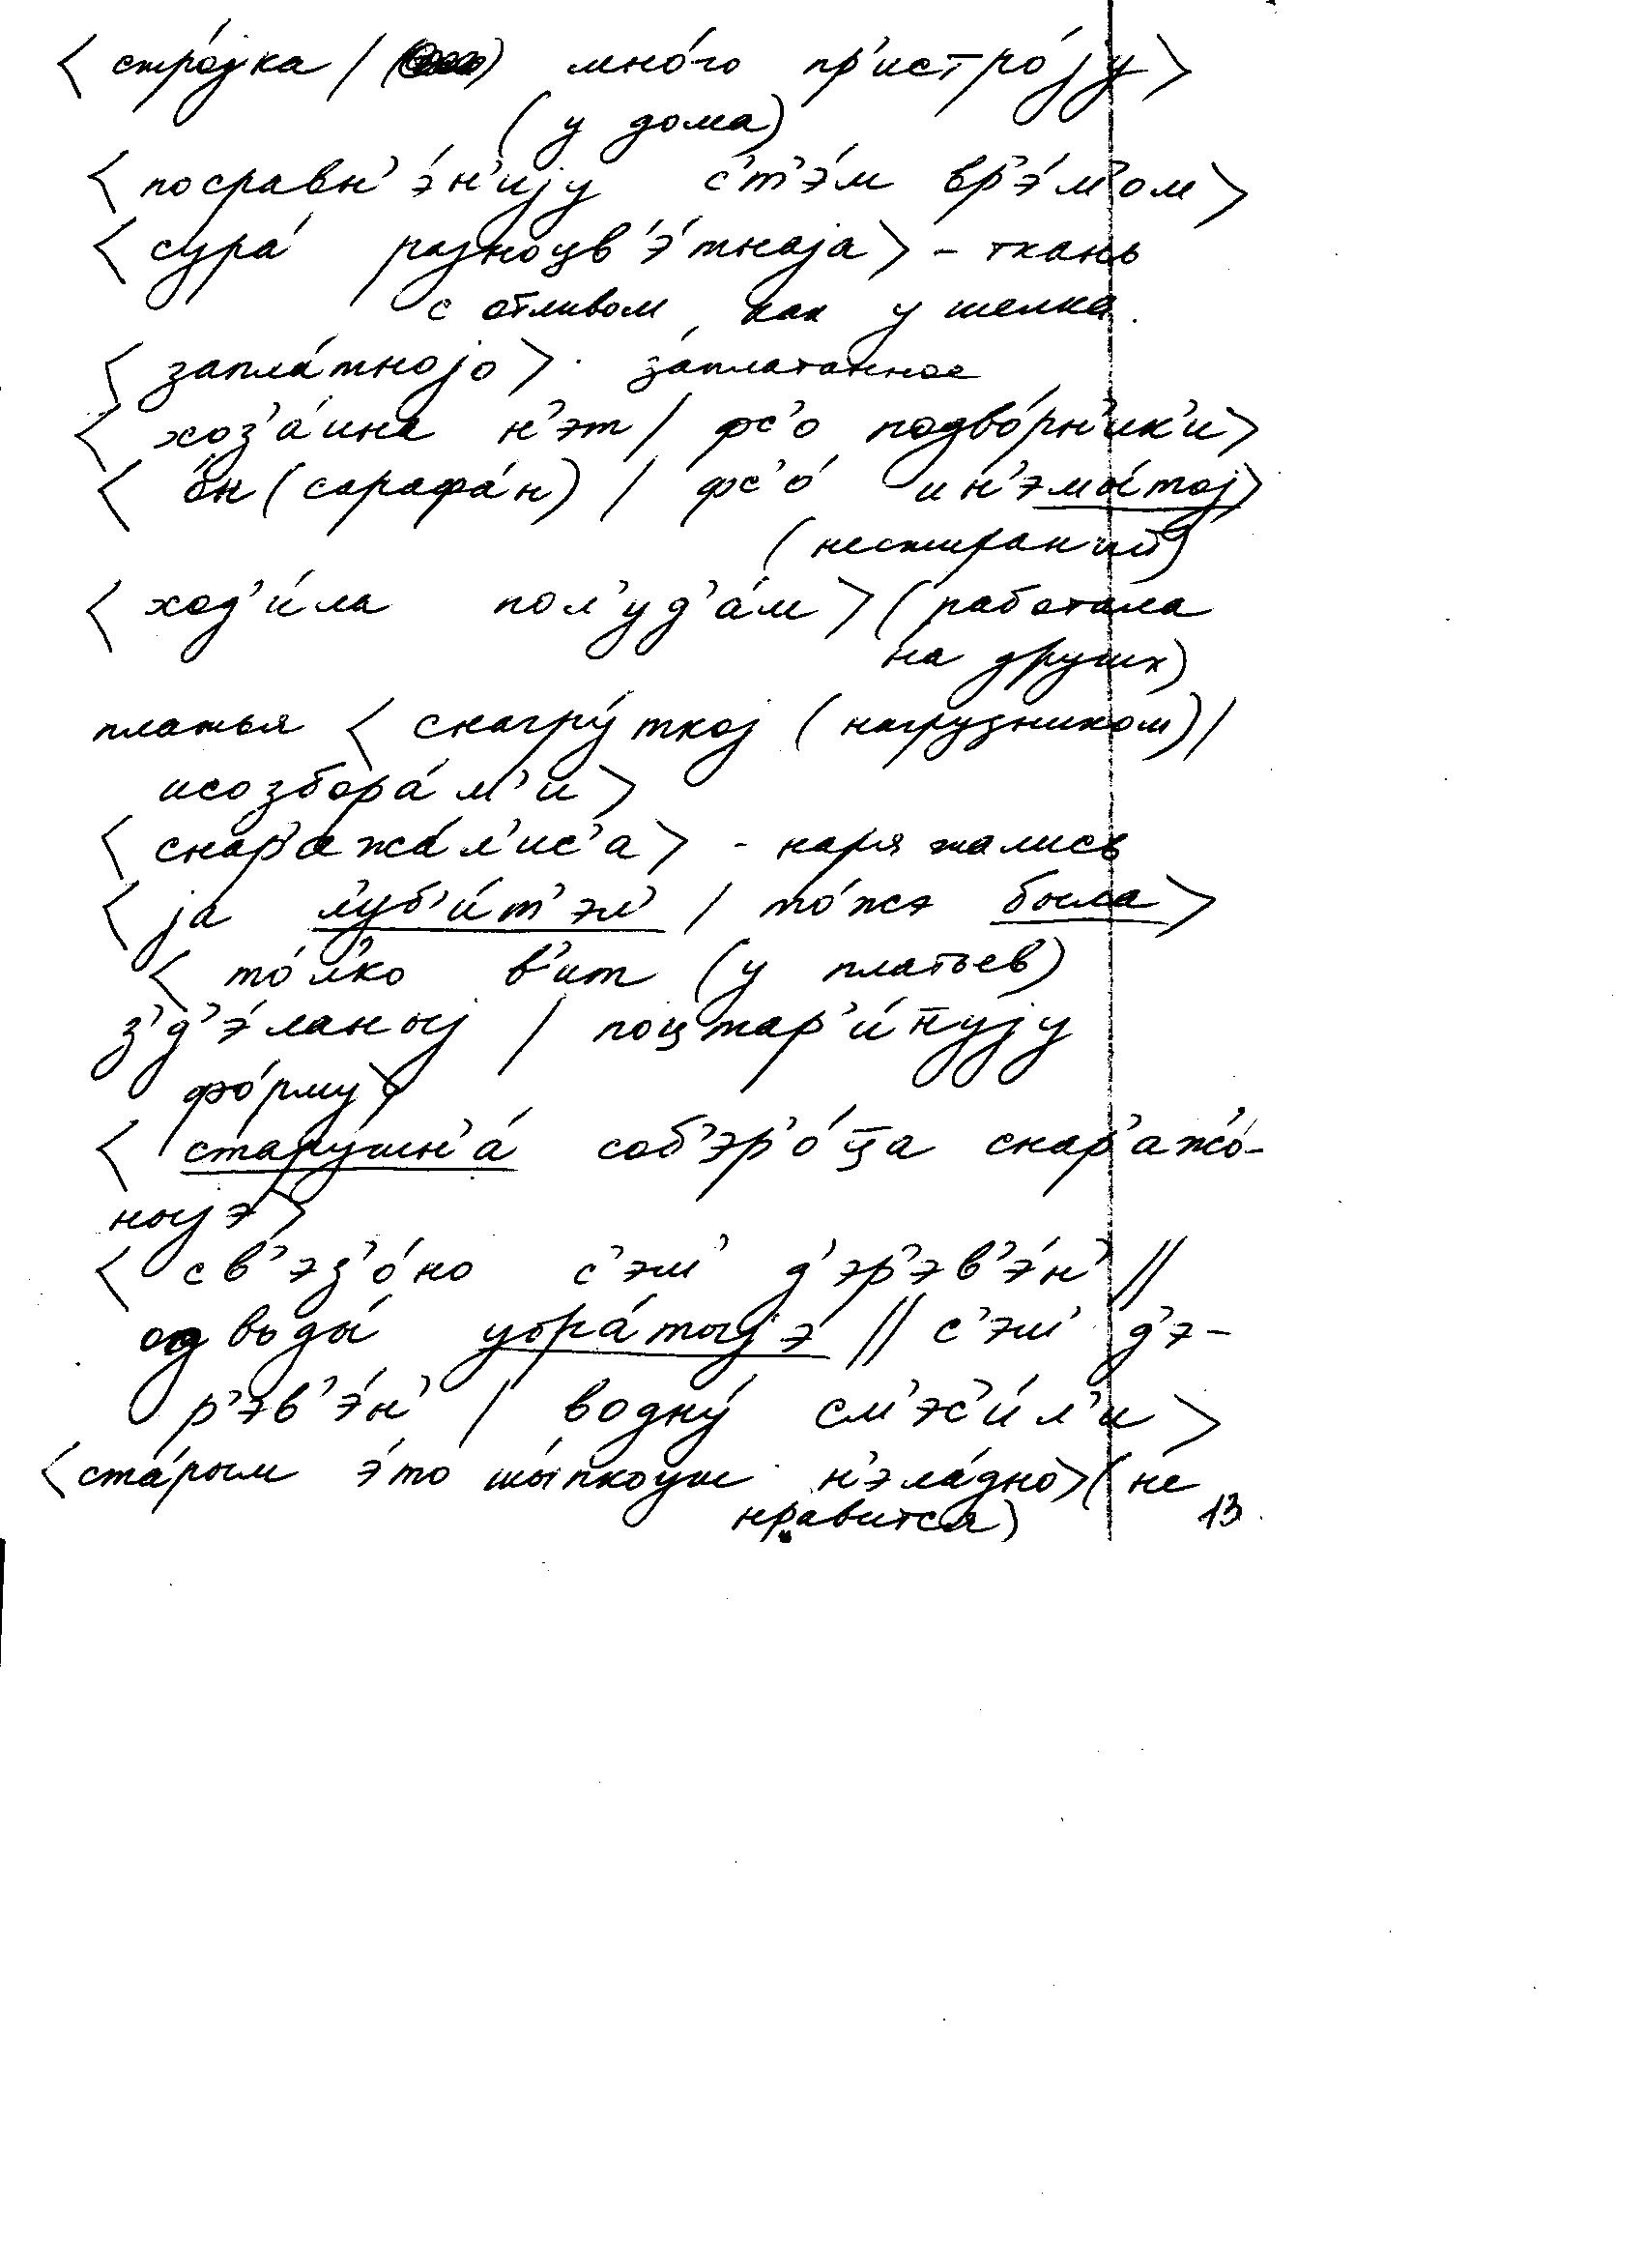 < стро́јка / мно́го пр'истро́ју >
(у дома)
< посравн'э́н'ију с'т'э́м вр'э́м'ом >
< сура́ разноцв'э́тнаја > - ткань
с отливом, как у шелка.
< запла́тнојо > . заплатанное
< хоз'а́ина н'эт / фс'о подво́рн'ик'и >
< о́н (сарафа́н) / фс'о́ ин'эмы́тој >
(нестираный)
< ход'и́ла пол'уд'а́м > (работала
на других)
платья < снагру́ткој (нагрузником) /
исозбора́м'и >
< снар'ажа́л'ис'а > - наряжались
< ја л'уб'и́т'эл' / то́жэ была >
< то́л'ко в'ит (у платьев)
з'д'э́ланыј / поцтар'и́н̄ују
фо́рму >
< стару́шн'а́ соб'эр'о́ц̄а снар'ажо́-
ныјэ >
< св'эз'о́но с'эм' д'эр'эв'э́н' //
одводы́ убра́тыјэ // с'эм' д'э-
р'эв'э́н' / водну́ см'эс'и́л'и >
< ста́рым э́то шы́пкоуш н'эла́дно > (не
нравится) 13